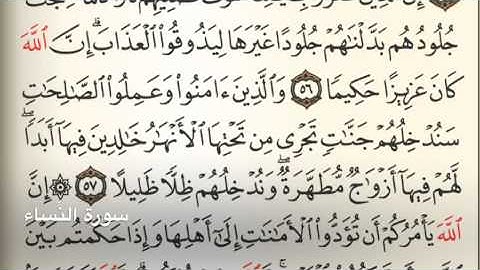 جُلُودُهُم بَدَّلْنَٰهُمْ جُلُودًا غَيْرَهَا لِيَذُوقُوا۟ ٱلْعَذَابَ ۗ إِنَّ ٱللَّهَ
كَانَ عَزِيزًا حَكِيمًا ٥٦ وَٱلَّذِينَ ءَامَنُوا۟ وَعَمِلُوا۟ ٱلصَّٰلِحَٰتِ
سَنُدْخِلُهُمْ جَنَّٰتٍ تَجْرِى مِن تَحْتِهَا ٱلْأَنْهَٰرُ خَٰلِدِينَ فِيهَآ أَبَدًا ۖ
لَّهُمْ فِيهَآ أَزْوَٰجٌ مُّطَهَّرَةٌ ۖ وَنُدْخِلُهُمْ ظِلًّا ظَلِيلًا ٥٧ ۞ إِنَّ
سورة النساء
ٱللَّهَ يَأْمُرُكُمْ أَن تُؤَدُّوا۟ ٱلْأَمَٰنَٰتِ إِلَىٰٓ أَهْلِهَا وَإِذَا حَكَمْتُم بَيْنَ